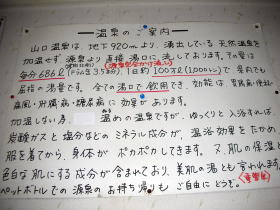 ―温泉のご案内―
山口温泉は、地下920mより、湧出している天然温泉を
加温せず源泉より直接湯口に流しております。その量は
(源泉完全かけ流し)
毎分686ℓ(ドラム缶3.5本分)、1日約100万ℓ(1,000トン)で県内でも
屈指の湯量です。全ての湯口で飲用でき、効能は胃腸病・便秘
痛風・肝臓病・糖尿病に効果があります。
加温しない為、温めの温泉ですが、ゆっくりと入浴すれば、
炭酸ガスと塩分などのミネラル成分が、温浴効果をたかめ
服を着てから、身体がポカポカしてきます。又、肌の保湿と
色白な肌にする成分が含まれており、美肌の湯とも言われます。
ペットボトルでの源泉のお持ち帰りもご自由にどうぞ。